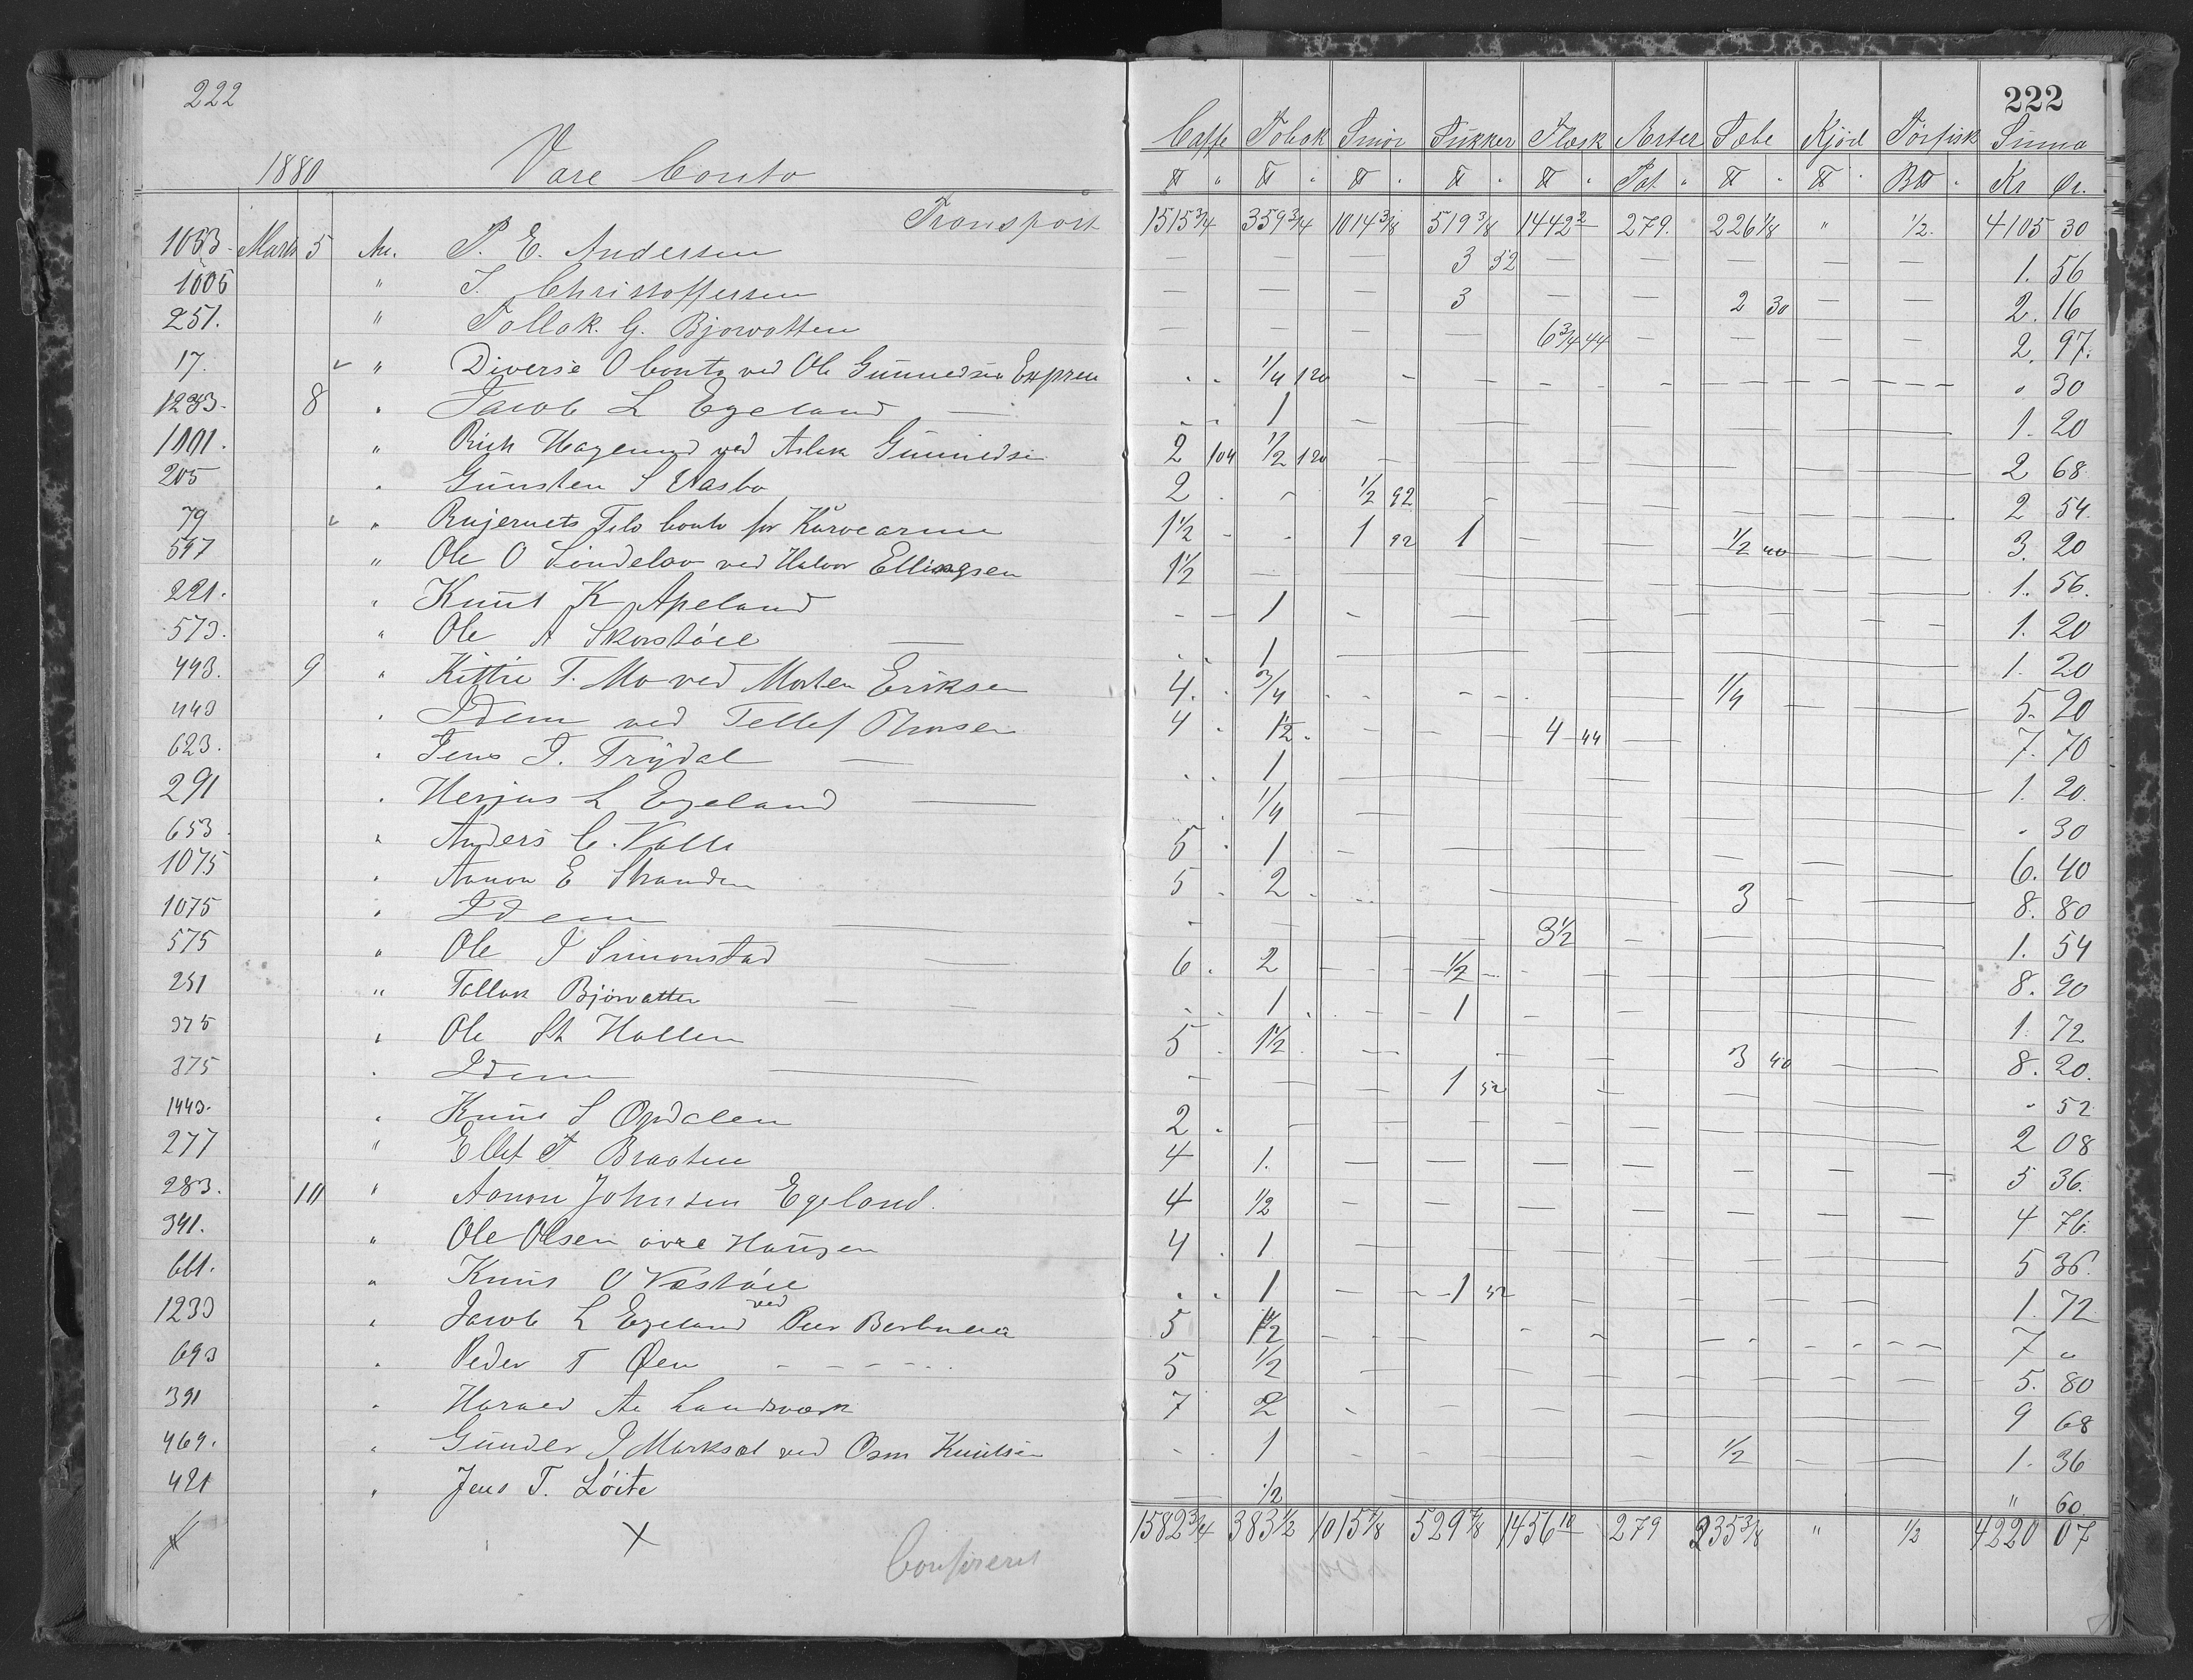 222
222
1880 Vare Conto
Caffe Tobak Smör Sukker Flæsk Ærter Sæbe Kjöd Törfisk Suma
℔ " ℔ " ℔ " ℔ " ℔ " Pot " ℔ " ℔ " B℔ " Kr Ör.
Transport 1515 3/4 359 3/4 1014 3/8 519 3/8 1442 2 279. 226 1/8 " 1/2. 4105 30
1053. Marts 5 An. P. E. Andersen — — — 3 52 — — — — — 1. 56
1006 " J. Christoffersen — — — 3 — — 2 30 — — 2. 16
251. " Tollak G. Bjorvatten — — — — 6 3/4 44 — — — — 2. 97.
17. " Diverse Conto ved Ole Gunnedsen 1/4 120 " 30
1233. 8 " Jacob L Egeland — 1 1. 20
1101. " ved Aslak Gunnedsen 2 104 1/2 120 2 68
205 " Gunsten S 2 1/2 92 2 54.
79 " Conto for 1 1/2 1 92 1 1/2 40 3. 20
547 " Ole O Lindelöv ved Halvor Ellingsen 1 1/2 1. 56.
221. " Knut K Apeland 1 1. 20
573. " Ole A Skorstöll — 1 1. 20
443. 9 " Kittil T. Mo ved Morten Eriksen 4. 3/4 1/4 5. 20
443 " Idem ved Tellef 4 1 1/2 4 44 7. 70
623. " Jens J. Trydal — 1 1. 20.
291 " Herjus L Egeland — 1/4 " 30
653 " Anders C. Valle 5 1 6. 40
1075 " Aanon E Stranden 5 2 3 8. 80
1075 " Idem — 3 1/2 1. 54
575 " Ole J Simonstad — 6. 2 1/2 8. 90
251 " Tollak Bjorvatten — 1 1 1. 72
375 " Ole St Hollen 5 1 1/2 3 40 8. 20.
375 " Idem — 1 52 " 52
1443. " Knut S Opdalen 2 2 08
277 " Ellef T Braaten 4 1. 5 36.
283. 10 " Aanon Johnsen Egeland. 4 1/2 4 76.
341. " Ole Olsen övre Haugen 4 1 5 36.
661. " Knut O Vestöll 1 1 52 1. 72
1233 " Jacob L Egeland ved Peer 5 1 1/2 7 "
693 " Peder T Øen 5 1/2 5. 80
391 " Harald A. Landsværk 7 2 9 68
469. " Gunder J Morksæt ved Osm Knutsen 1 1/2 1. 36
421 " Jens T. Löite — 1/2 " 60.
X 1582 3/4 383 1/2 1015 7/8 529 7/8 1456 10 279 235 3/8 " 1/2 4220 07
Confereret